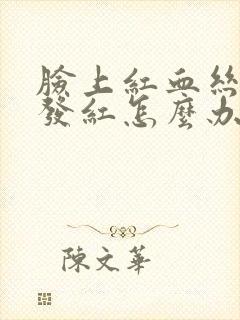 臉上紅血絲
發紅怎麼办
陳文華